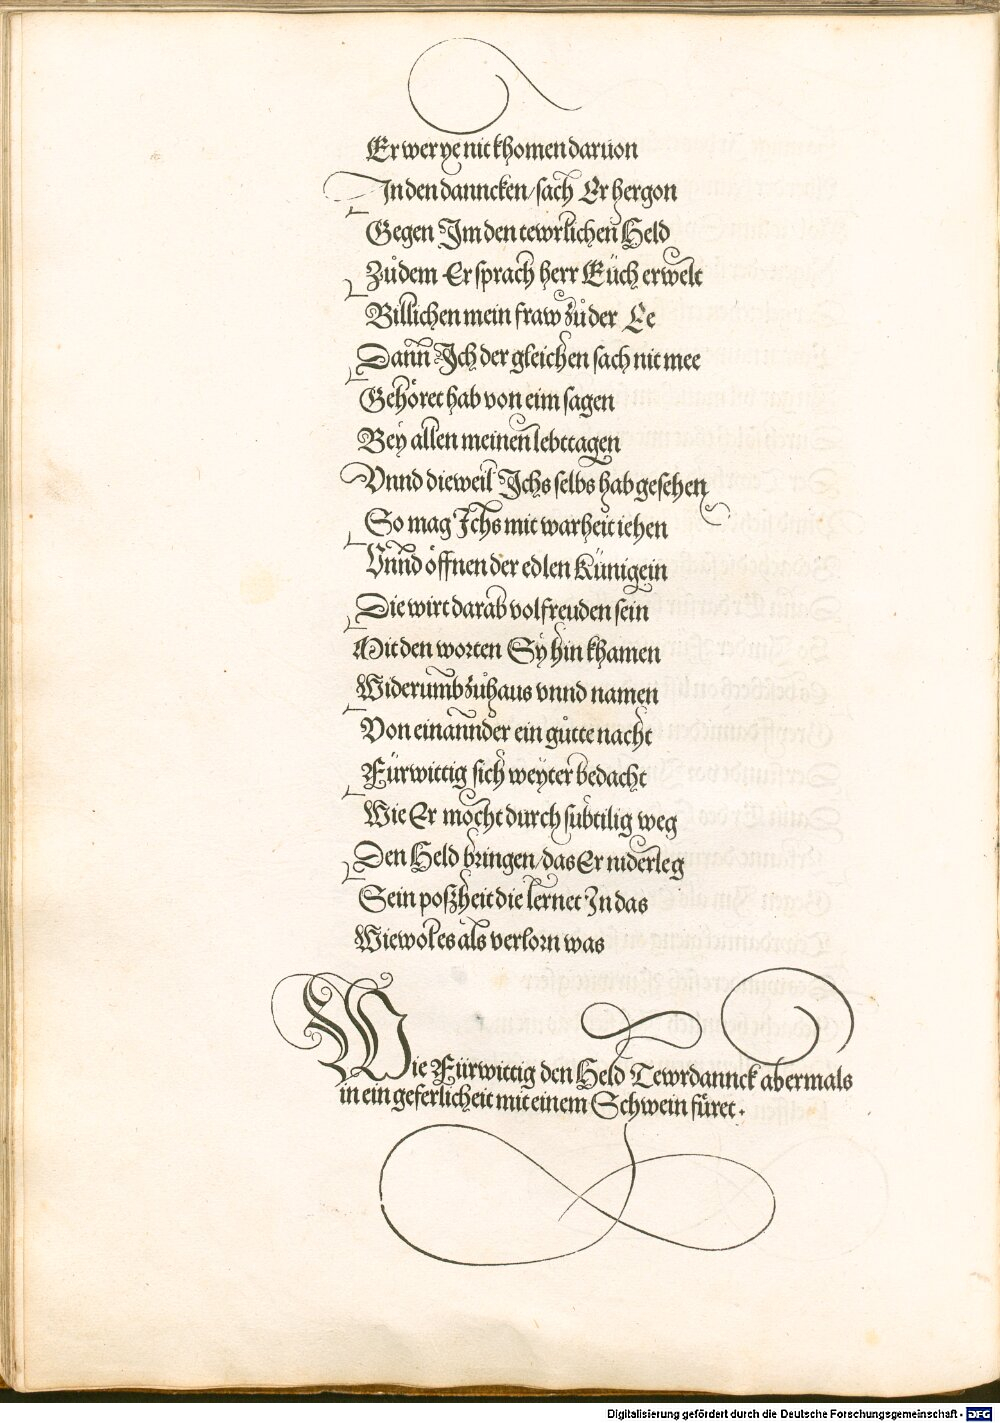 Er wer ye nit khomen daruon
In den danncken/sach Er hergon
Gegen Im den tewrlichen Held
Zůdem Er sprach herr Eüch erwelt
Billichen mein fraw zů der Ee
Dann Ich der gleichen sach nit mee
Gehöret hab von eim sagen
Bey allen meinen lebttagen
Vnnd dieweil Ichs selbs hab gesehen
So mag Ichs mit warheit iehen
Vnnd öffnen der edlen Künigein
Die wirt darab vol freuden sein
Mit den worten Sy hin khamen
Widerumb zůhaus vnnd namen
Von einannder ein gůtte nacht
Fürwittig sich weyter bedacht
Wie Er möcht durch subtilig weg
Den Held bringen/das Er niderleg
Sein poßheit die lernet In das
Wiewol es als verlorn was
Wie Fürwittig den Held Tewrdannck abermals
in ein geferlicheit mit einem Schwein füret.
Digitalisierung gefördert durch die Deutsche Forschungsgemeinschaft - DFG